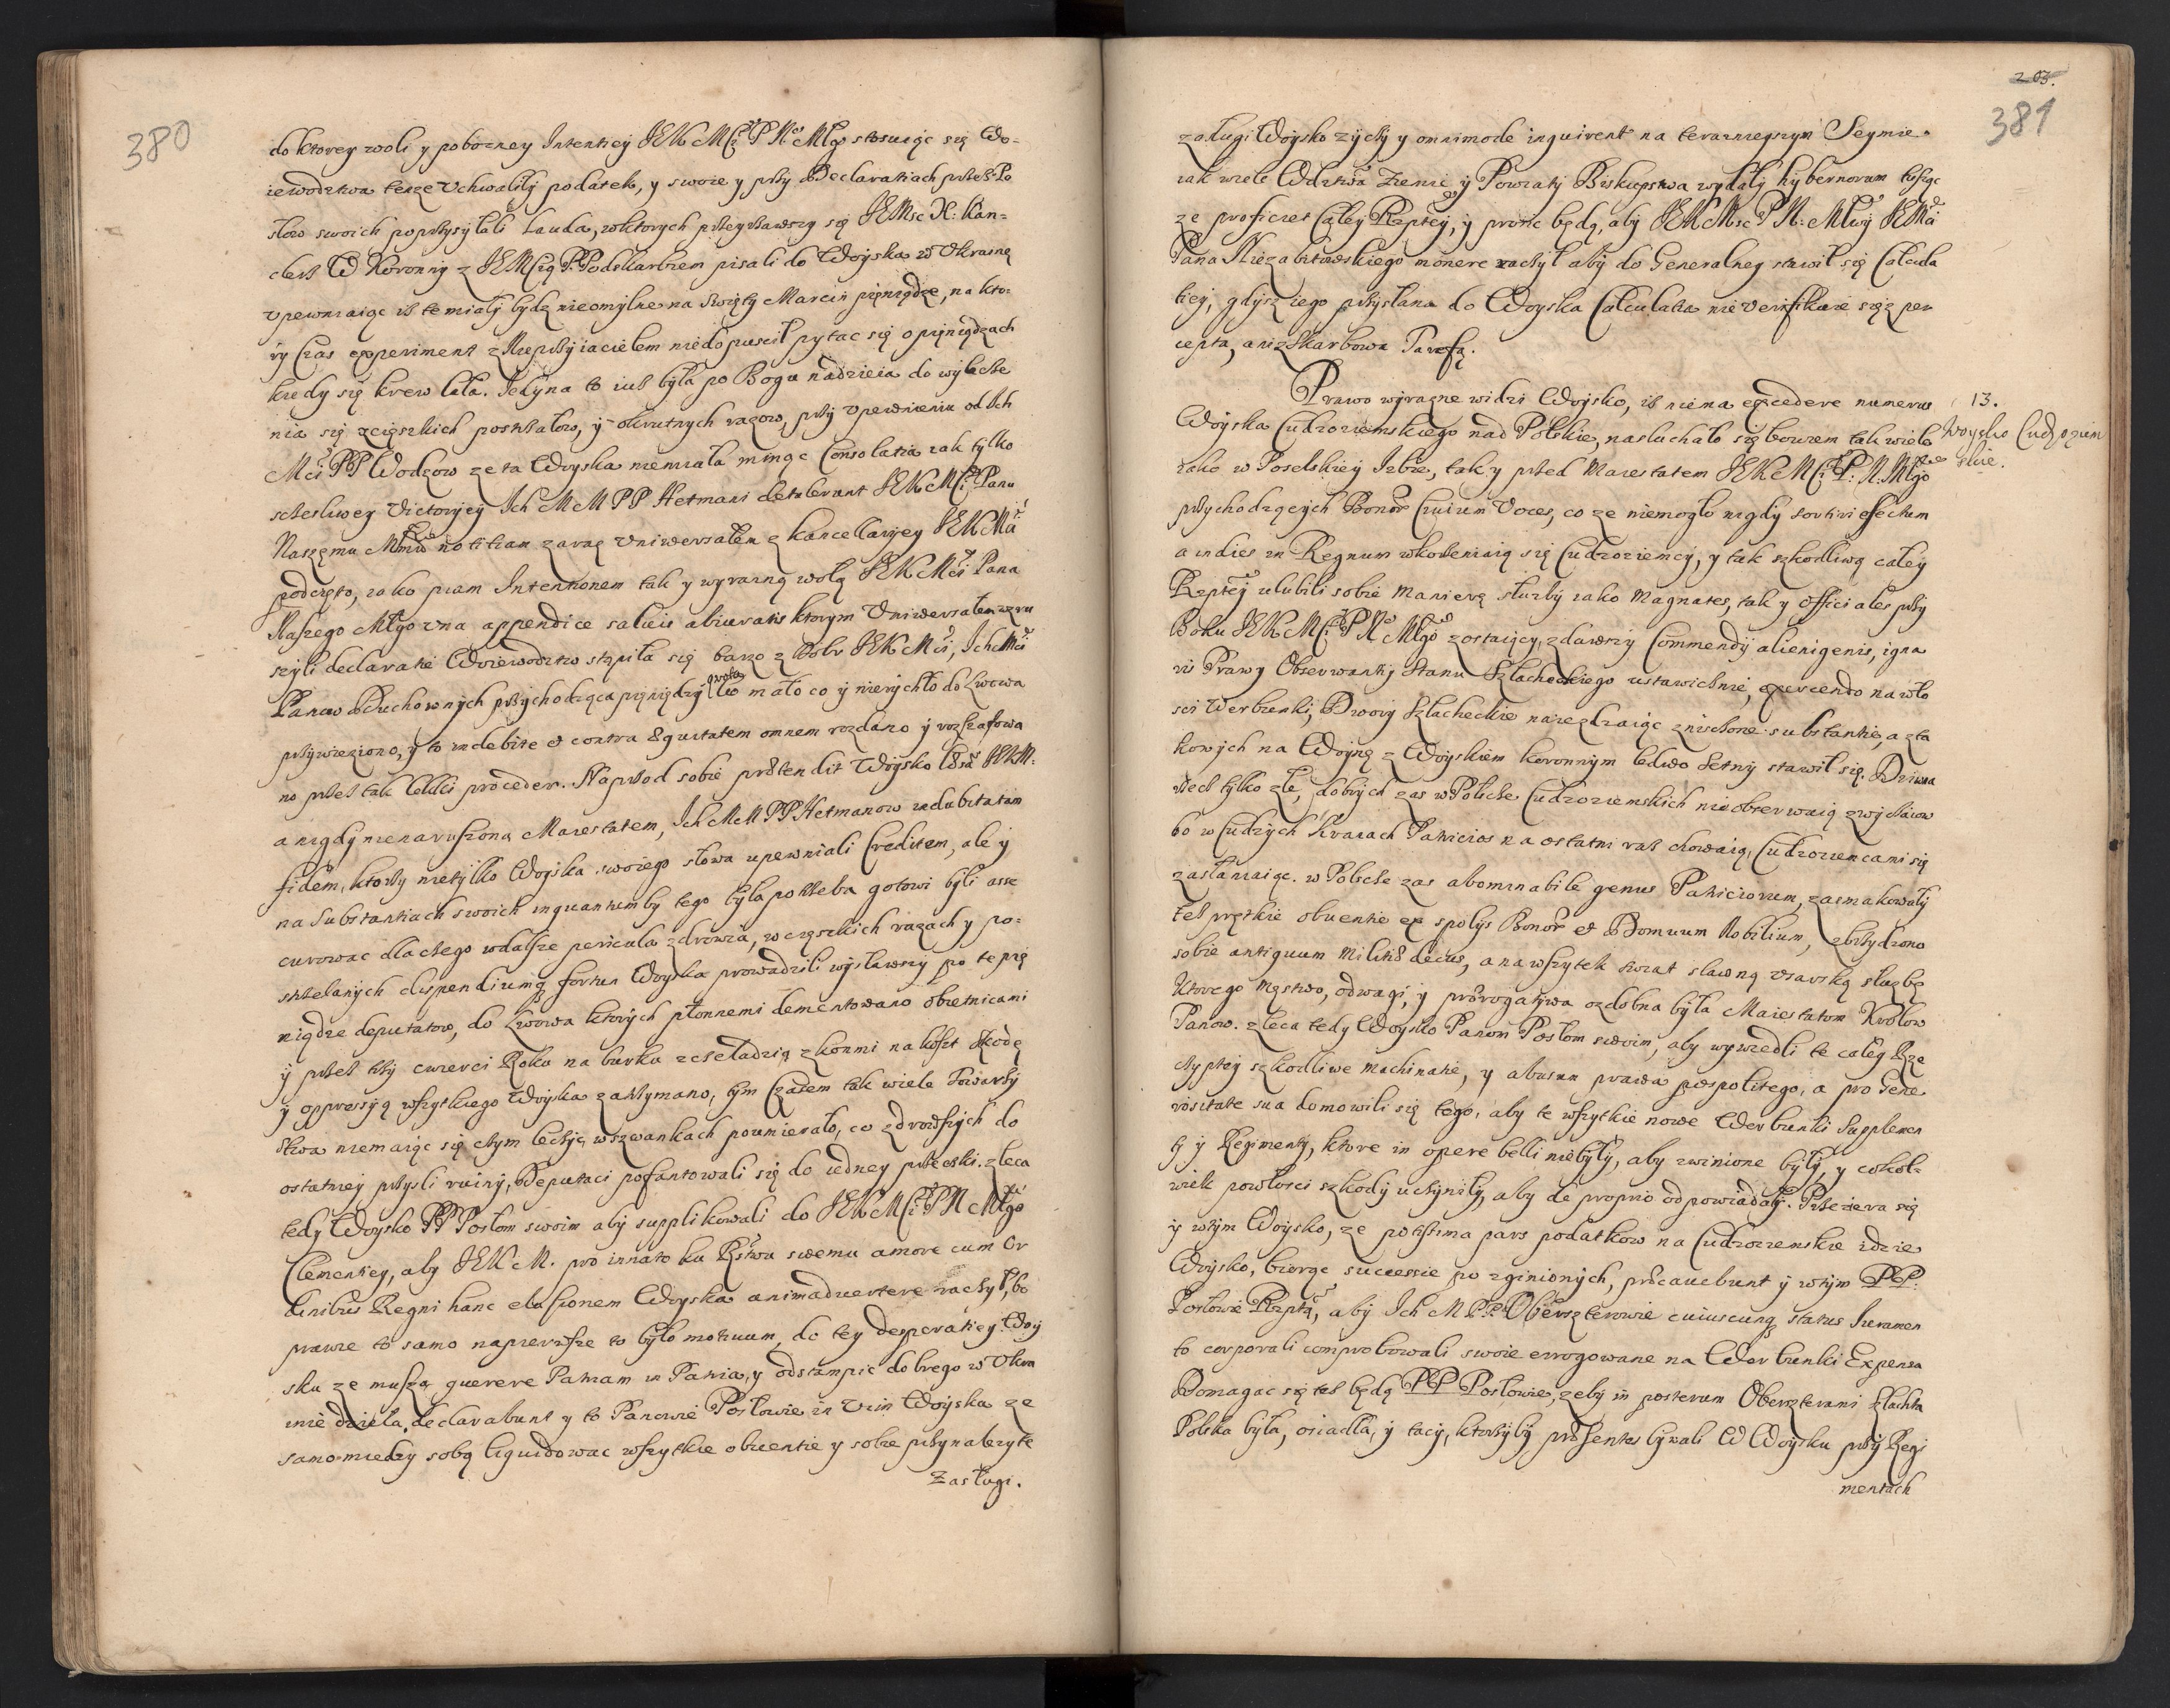 380
do ktorey woli y pobozney Intentiey JEK MCi P No Mlgo stosuiąc się Wo-
iewodztwa teże Vchwalily podatek, y swoie y przy Declaratiach przez Po
słow swoich poprzysyłali Lauda, wktorych przeyrzawszy się JEMsc X: Kan-
clerz W Koronny z JEMCią P: Podskarbim pisali do Woyska w Vkrainę
vpewniaiąc iż te miały bydz nieomylne na Swięty Marcin pięniądze, na kto-
ry Czas experiment z Nieprzyiacielem niedopuscił pytac się o pięniądzach
kiedy się krew lała. Jedyna to iusz była po Bogu nadzieia do wylecze
nia się zcięszkich postrzałow, y okrutnych razow, przy vpewnieniu od Ich
Mci PP Wodzow ze ta Woyska niemiała minąc Consolatia iak tylko
szczesliwey Victoryey Ich McM PP Hetmani detulerunt JEK MCi Panu
Naszęmu Mmu notitiam zaraz Vniwersałem z kancellaryey JEKMci
podczęto, iako piam Intentionem tak y wyrazną wolą JEK Mci Pana
Naszego Mlgo vna appendice saliuis abiuratis ktorym Vniwersałem zru
szyli declaratie Woiewodztw stąpiła się barzo z Dobr JEK Mci, Ich Mci
Panow Duchownych przychodząca pięniędzy quota bo mało co y nierychło do Lwowa
przywieziono, y to indebite et contra Equitatem omnem rozdano y rozszafowa
no przez tak lekki proceder. Naprzod sobie prætendit Woysko læsa JEKM:
a nigdy nienaruszona Maiestatem, Ich McM PP Hetmanow indubitatam
fidem, ktorzy nietylko Woyska swoiego słowa upewniali Creditem, ale y
na Substantiach swoich inquantum by tego była potrzeba gotowi byli asse
curowac dlaczego wdalsze pericula zdrowia, w cięszkich razach y po-
strzelanych dispendiumq fortun Woyska prowadzili wysławszy po te pię
niądze deputatow, do Lwowa ktorych płonnemi dementowano obietnicami
y przez trzy cwierci Roku na burku zczeladzią zkonmi na koszt szkodę
y oppressyą wszytkiego Woyska zatrzymano, tym Czasem tak wiele Towarzy
stwa niemaiąc się czym leczyc, wszwankach poumierało, co zdrowszych do
ostatniey przyszli ruiny, Deputaci pofantowali się do iedney przeczki. zleca
tedy Woysko PP Posłom swoim aby supplikowali do JEK MCi PN Mlgo
Clementiey, aby JEK M. pro innato ku Pstwu swemu amore cum Or
dinibus Regni hanc elusionem Woyska animadvertere raczył, bo
prawie to samo naypierwsze to było motiuum do tey desperatiey Woy
sku ze muszą quærere Patriam in Patria, y odstąmpic dobrego w Vkra
inie dzieła, declarabunt y to Panowie Posłowie in Vim Woyska ze
samo miedzy sobą liquidowac wszytkie obuentie y sobie przynależyte
Zasługi.
203.
381
zasługi Woysko życzy y omnimode inquirent na teraznieyszym Seymie.
iak wiele Wdztwa Ziemie y Powiaty Biskupstwa wydały hybernorum tusząc
ze proficiet Całey Rzptey, y prosic będą, aby JEK Msc P N: Mlwy JEMci
Pana Niezabitowskiego monere raczył aby do Generalney stawił się Calcula
tiey, gdysz iego przysłana do Woyska Calculatia nie verifikuie się z per
cepta, ani zskarbową Tarifą.
Prawo wyrazne widzi Woysko, iż niema excedere numerus
13.
Woyska Cudzoziemskiego nad Polskie, nasłuchało się bowiem tak wiele
Woysko Cudzoziem
skie.
iako w Poselskiey Izbie, tak y przed Maiestatem JEK MCi P: N: Mlgo
przychodzących Bonor Ciuium Voces, co ze niemogło nigdy sortiri effectum
a indies in Regnum wkorzeniaią się Cudzoziemcy, y tak szkodliwą całey
Rzptey ulubili sobie manierę służby iako Magnates, tak y officiales przy
Boku JEK MCi P No Mlgo zostaiący, zdawszy Commendy alienigenis, igna
ris Prawy Obserwantiy Stanu Szlacheckiego ustawicznie, exercendo na wło
sci Werbunki, Dwory Szlacheckie naiezdzaiąc zniszczone substantie, a zta
kowych na Woynę z Woyskiem koronnym ledwo Setny stawił się. Dziwna
rzecz tylko złe, dobrych zas w Polszcze Cudzoziemskich nieobserwuią zwyczaiow
bo w Cudzych Kraiach Patricios na ostatni raz chowaią, Cudzoziemcami się
zasłaniaiąc. w Polszcze zas abominabile genus Patriciorum, zasmakowały
też prętkie obuentie ex spolijs Bonor et Domuum Nobilium, zbrzydzono
sobie antiquum Militiæ decus, a nawszytek swiat sławną vsarską służbę
ktorego męstwo, odwagi, y prærogatywa ozdobna była Maiestatom Krolow
Panow. zleca tedy Woysko Panom Posłom swoim, aby wywiedli te całey Rze
czyptey szkodliwe machinatie, y abusum prawa pospolitego, a pro Gene
rositate sua domowili się tego, aby te wszytkie nowe Werbunki Supplemen
ty y Regimenty, ktore in opere belli niebyły, aby zwinione były, y cokol-
wiek powłosci szkody uczyniły, aby de proprio odpowiadały. Przeziera się
y wtym Woysko, ze potissima pars podatkow na Cudzoziemskie idzie
Woysko, biorąc successie po zginionych, præcauebunt y wtym PP:
Posłowie Rzpta, aby Ich M PP: Oberszterowie cuiuscunq status Iuramen
to corporali comprobowali swoie errogowane na Werbunki Expensa
Domagac się też będą PP Posłowie, zeby in posterum Oberszterami szlachta
Polska była, osiadła, y tacy, ktorzyby præsentes bywali W Woysku przy Regi
mentach